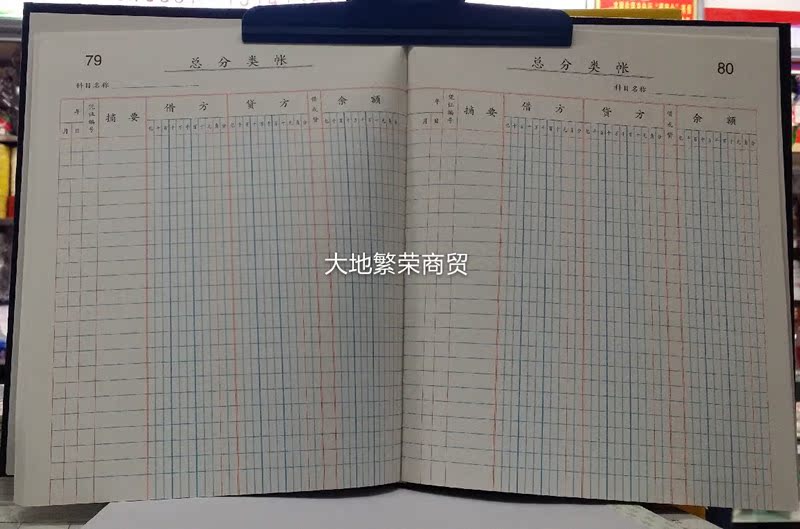 79
总分类帐
科目名称
年
凭证编号
摘要
借方
贷方
借或贷
余额
月
日
大地繁荣商贸
总分类帐
80
科目名称
年
凭证编号
摘要
借方
贷方
借或贷
余额
月
日